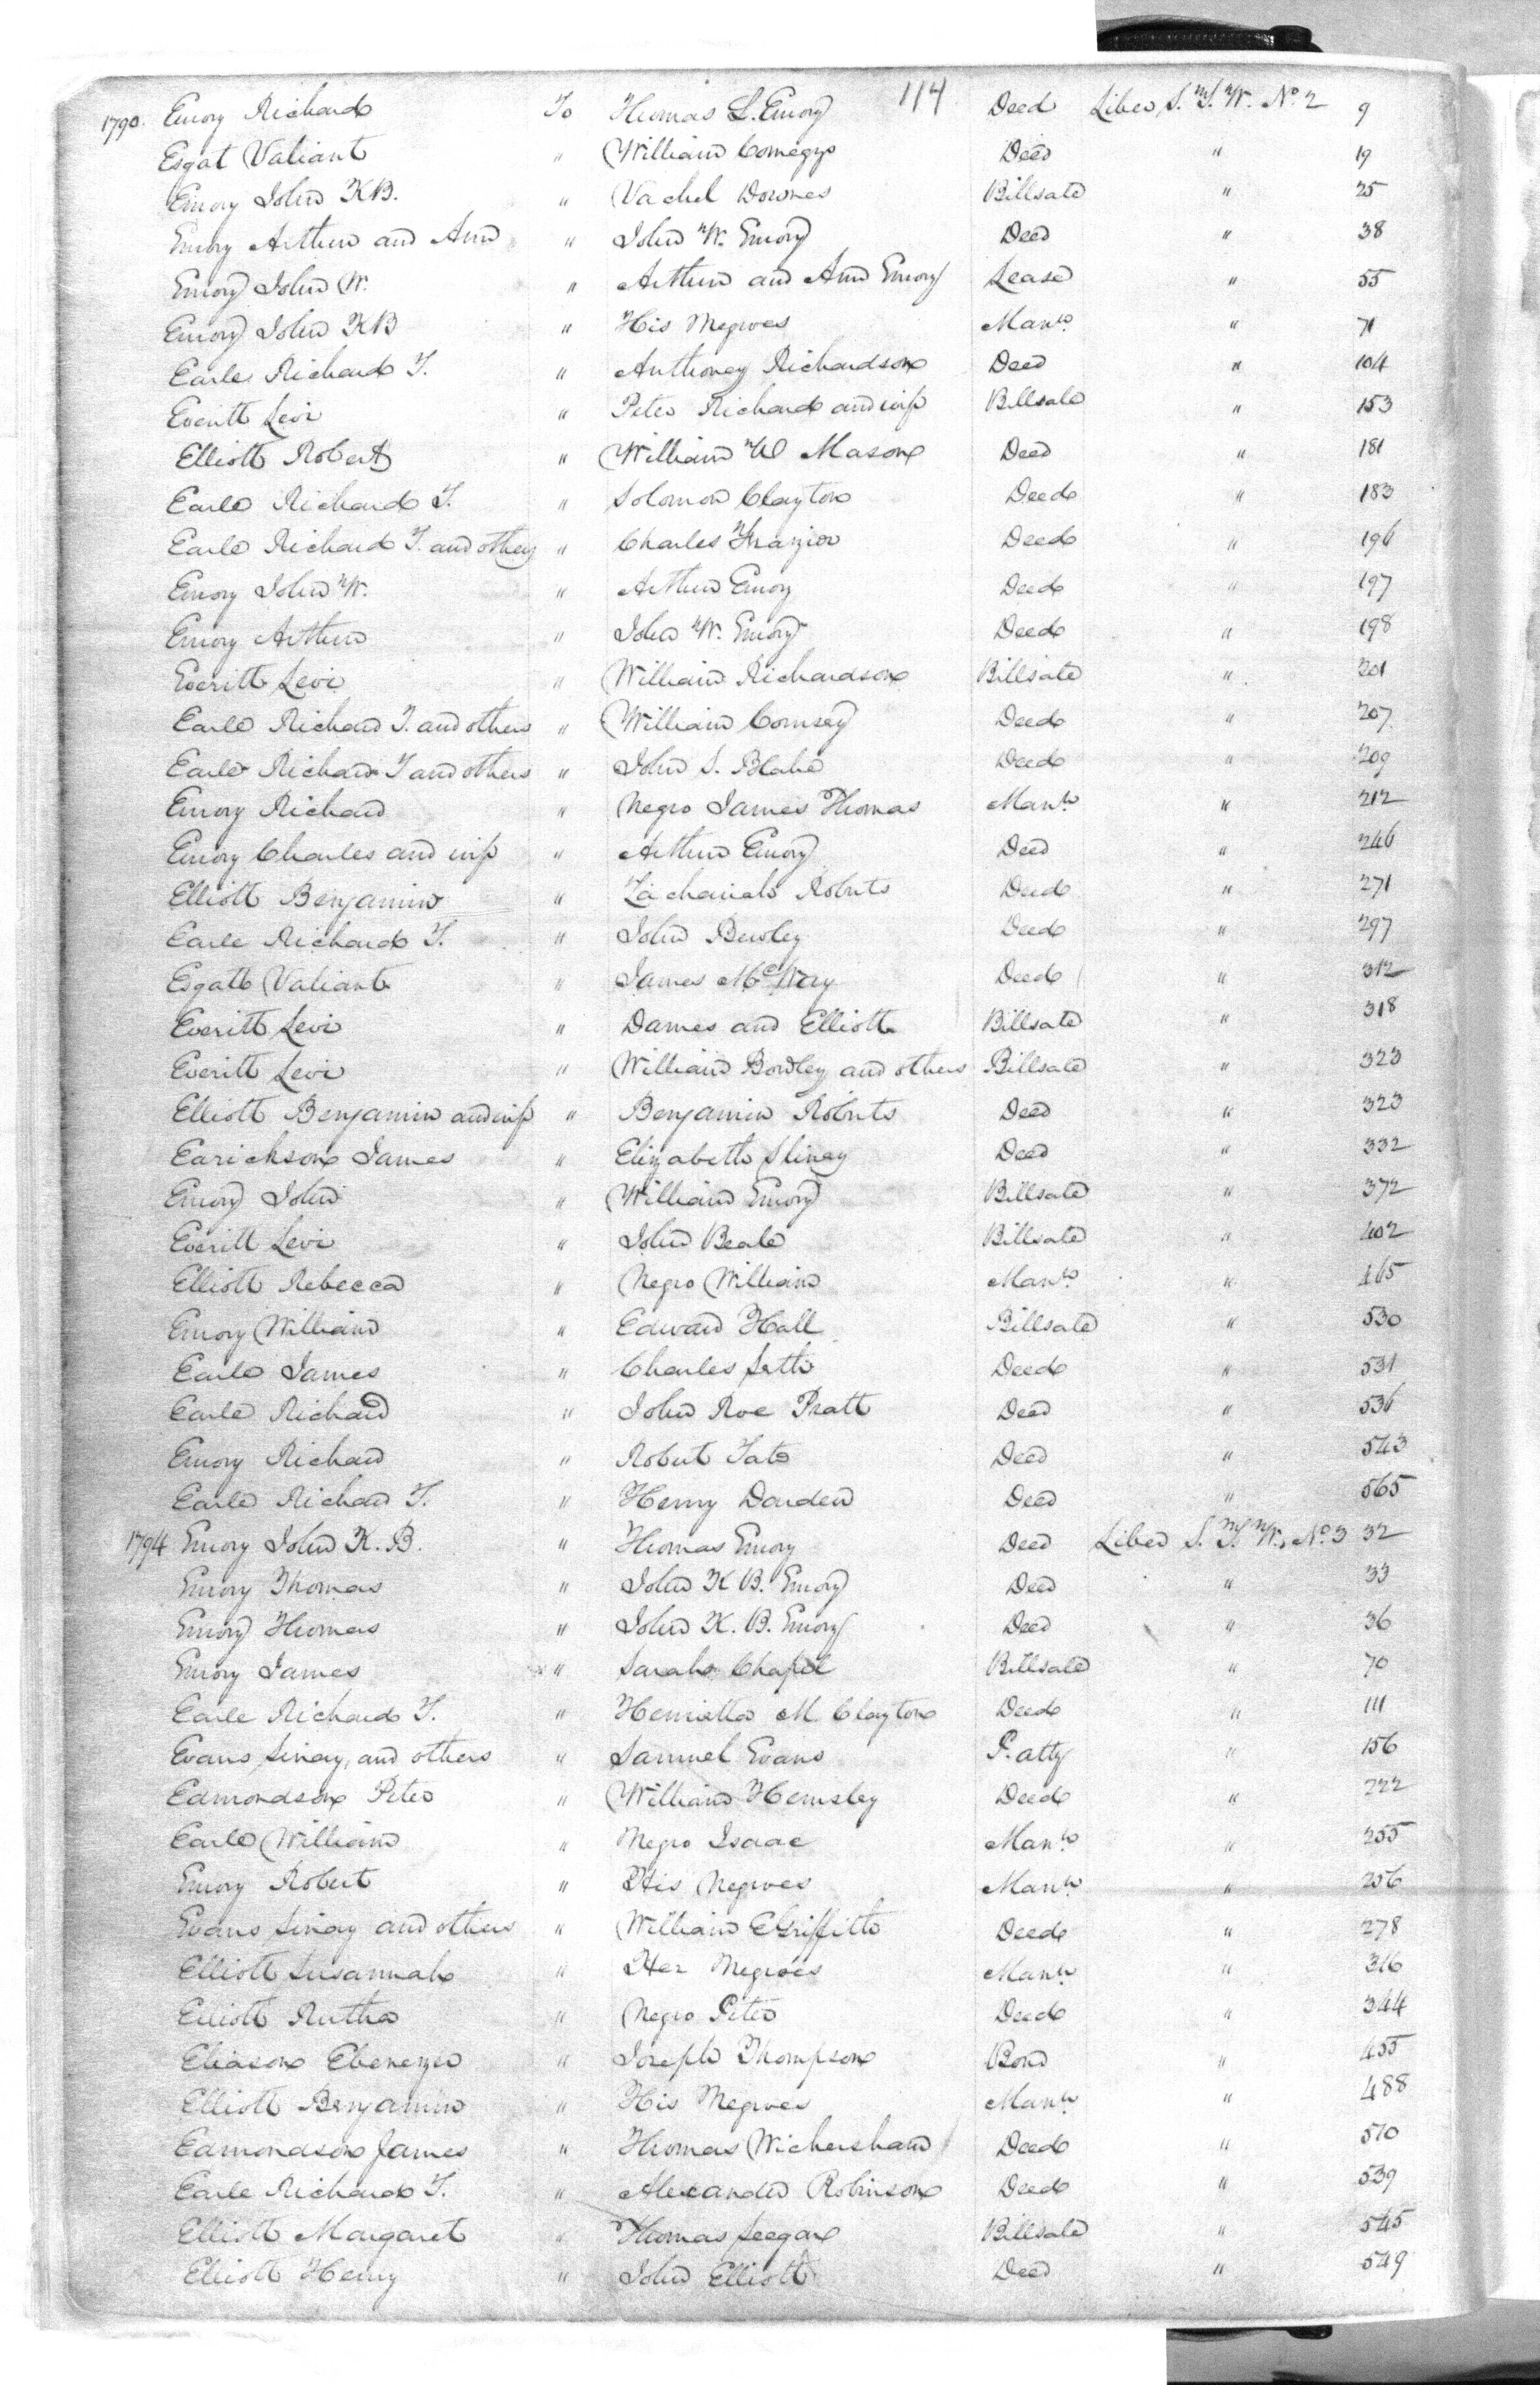 114
1790. Emory Richard To Thomas L. Emory Deed Liber S.T.W. No. 2 9
Esgat Valiant " William Comegys Deed " 19
Emory John K B. " Vachel Downes Billsale " 25
Emory Arthur and Ann " John W. Emory Deed " 38
Emory John W. " Arthur and Ann Emory Lease " 55
Emory John K B " His Negroes Mann. " 71
Earle Richard T. " Anthoney Richardson Deed " 104
Everitt Levi " Peter Richard and wife Billsale " 153
Elliott Robert " William W Mason Deed " 181
Earle Richard T. " Solomon Clayton Deed " 183
Earle Richard T. and others " Charles Frazier Deed " 196
Emory John W. " Arthur Emory Deed " 197
Emory Arthur " John W. Emory Deed " 198
Everitt Levi " William Richardson Billsale " 201
Earle Richard T. and others " William Coursey Deed " 207
Earle Richard T and others " John S. Blake Deed " 209
Emory Richard " Negro James Thomas Mann. " 212
Emory Charles and wife " Arthur Emory Deed " 246
Elliott Benjamin " Zachariah Roberts Deed " 271
Earle Richard T. " John Bewley Deed " 297
Esgatt Valiant " James Mc Deed " 312
Everitt Levi " Dames and Elliott Billsale " 318
Everitt Levi " William Bordley and others Billsale " 323
Elliott Benjamin and wife " Benjamin Roberts Deed " 323
Earickson James " Elizabeth Sliney Deed " 332
Emory John " William Emory Billsale " 372
Everitt Levi " John Beale Billsale " 402
Elliott Rebecca " Negro William Mann. " 465
Emory William " Edward Hall Billsale " 530
Earle James " Charles Seth Deed " 531
Earle Richard " John Roe Pratt Deed " 536
Emory Richard " Robert Tate Deed " 543
Earle Richard T. " Henry Darden Deed " 565
1794 Emory John K. B. " Thomas Emory Deed Liber S.T.W. No. 3 32
Emory Thomas " John K B. Emory Deed " 33
Emory Thomas " John K. B. Emory Deed " 36
Emory James " Sarah Chapel Billsale " 70
Earle Richard T. " Henrietta M. Clayton Deed " 111
Evans Sinay, and others " Samuel Evans P. atty " 156
Edmondson Peter " William Hemsley Deed " 222
Earle William " Negro Isaac Mann. " 255
Emory Robert " His Negroes Mann. " 256
Evans Sinay and others " William E Griffith Deed " 278
Elliott Susannah " Her Negroes Mann. " 316
Elliott Rutha " Negro Peter Deed " 344
Eliason Ebenezer " Joseph Thompson Bond " 455
Elliott Benjamin " His Negroes Mann. " 488
Edmondson James " Thomas Wickersham Deed " 510
Earle Richard T. " Alexander Robinson Deed " 539
Elliott Margaret " Thomas Seegar Billsale " 545
Elliott Henry " John Elliott Deed " 549